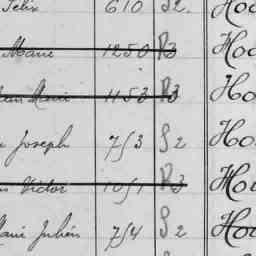 Félix 610 S2. Ho
Marie 1250 R3 Ho
Jean Marie 1153 R3 Ho
Joseph 7/3 S2 Ho
Victor 10/1 R3 Ho
Marie Julien 7/4 S2 Ho